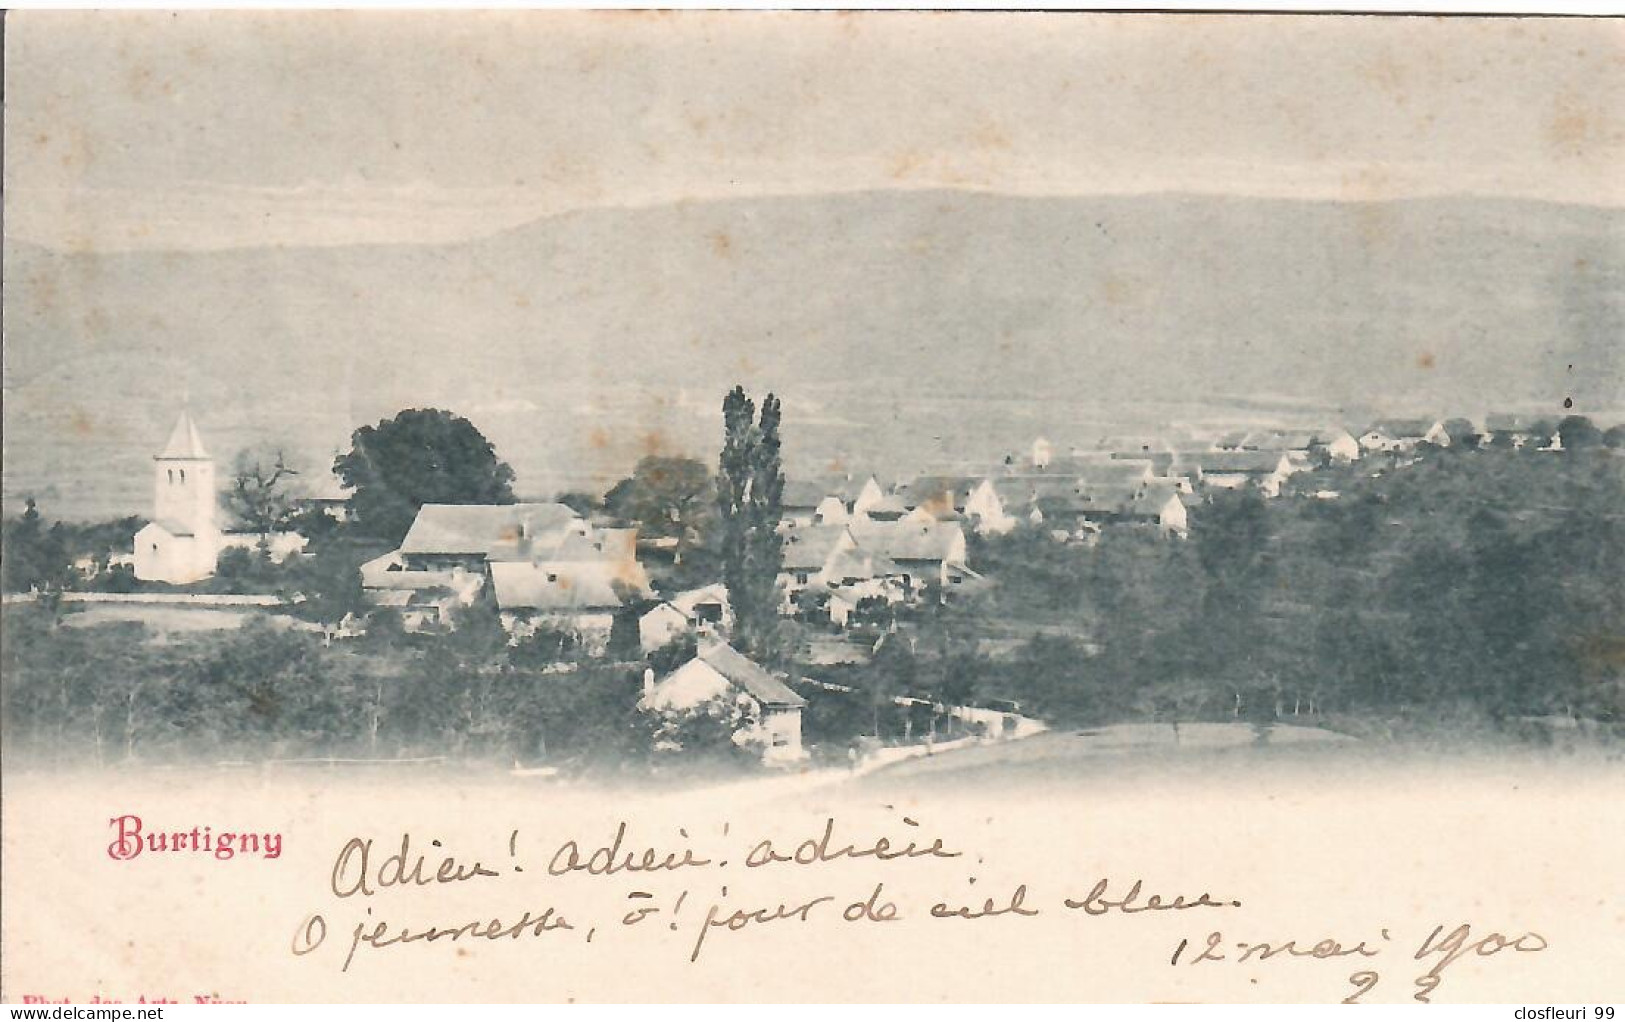 Burtigny
Adieu! adieu! adieu
O jeunesse, ô! jour de ciel bleu.
12 mai 1900
Phot. des Arts, Nyon
closfleuri 99
delcampe.net